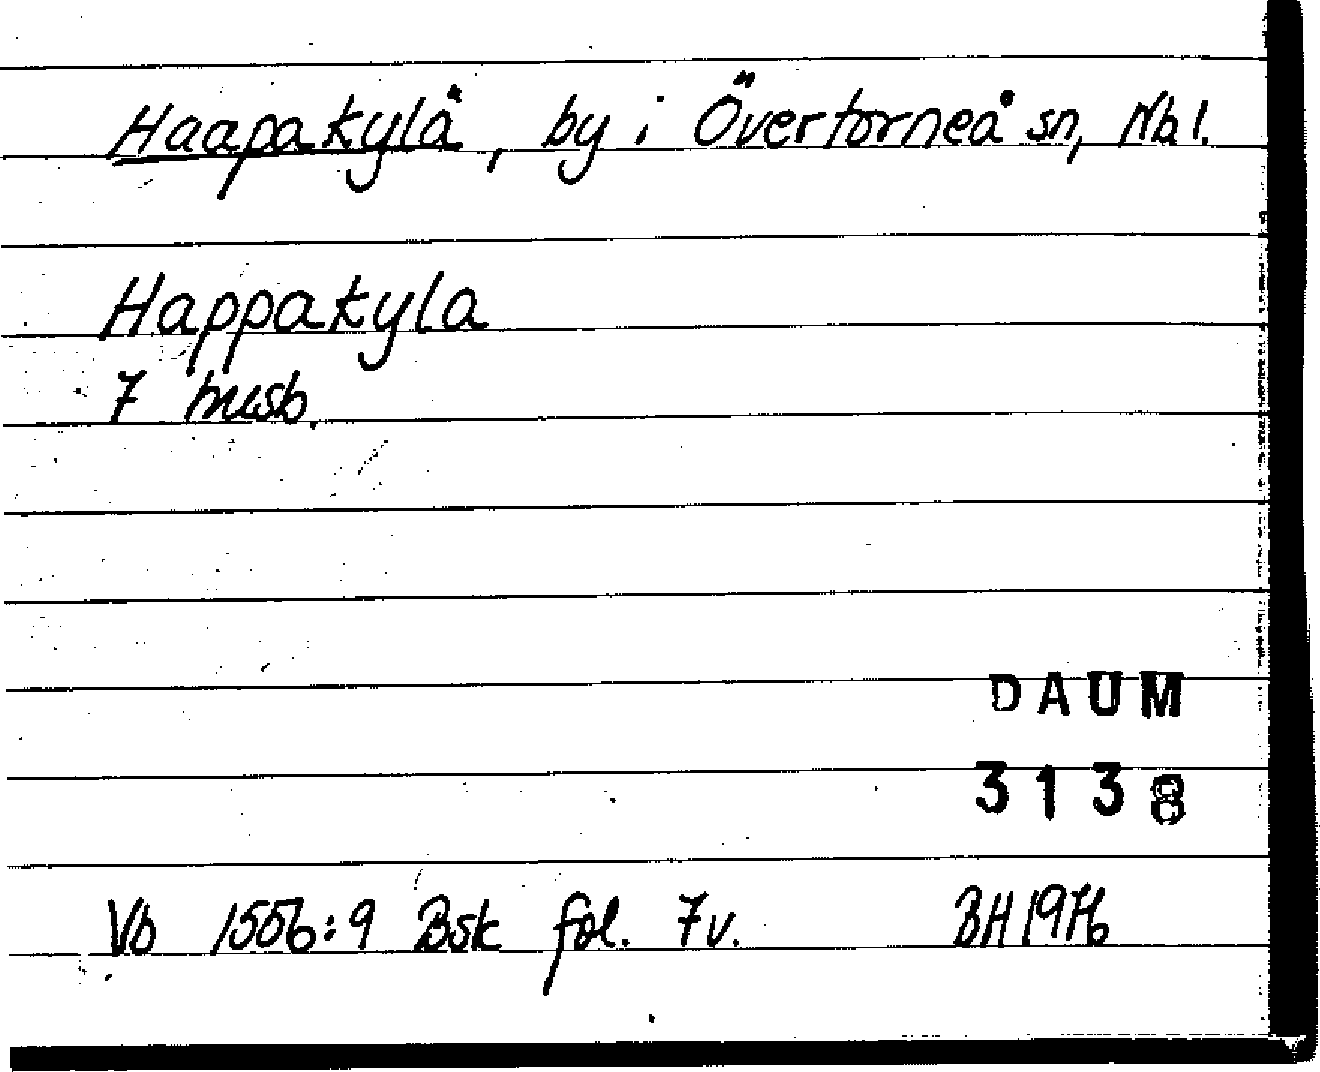 Haapakylä, by i Övertorneå sn, Nb l.
Happakyla
7 husb.
DAUM
3138
Vb 1556:9 Bsk fol. 7v. BH 1976